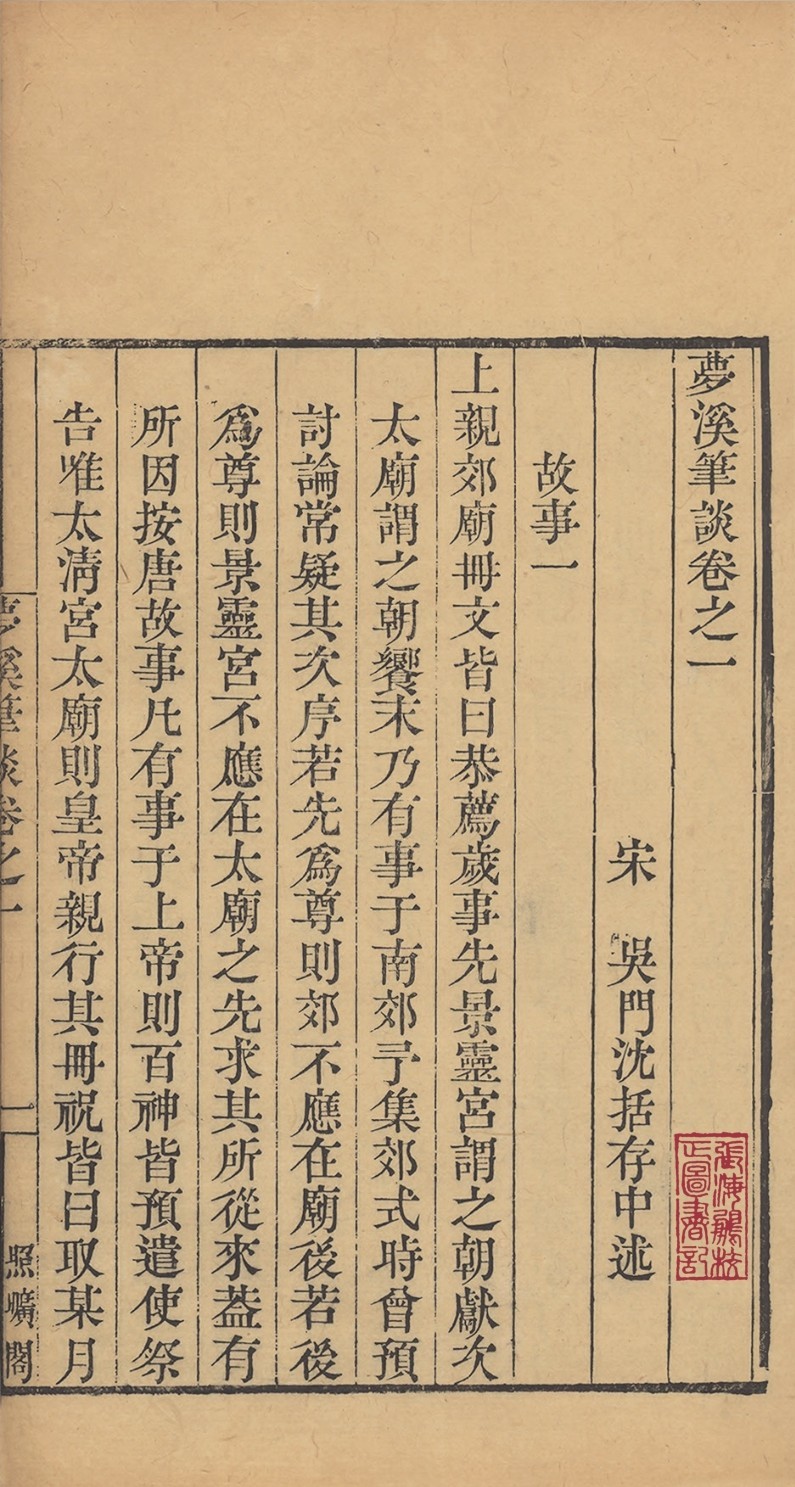 夢溪筆談卷之一
宋　吳門沈括存中述
故事一
上親郊廟冊文皆曰恭薦歲事先景靈宮謂之朝獻次
太廟謂之朝饗末乃有事于南郊予集郊式時曾預
討論常疑其次序若先爲尊則郊不應在廟後若後
爲尊則景靈宮不應在太廟之先求其所從來葢有
所因按唐故事凡有事于上帝則百神皆預遣使祭
告唯太淸宮太廟則皇帝親行其冊祝皆曰取某月
夢溪筆談卷之一
一
照曠閣
張海鵬校
正圖書記